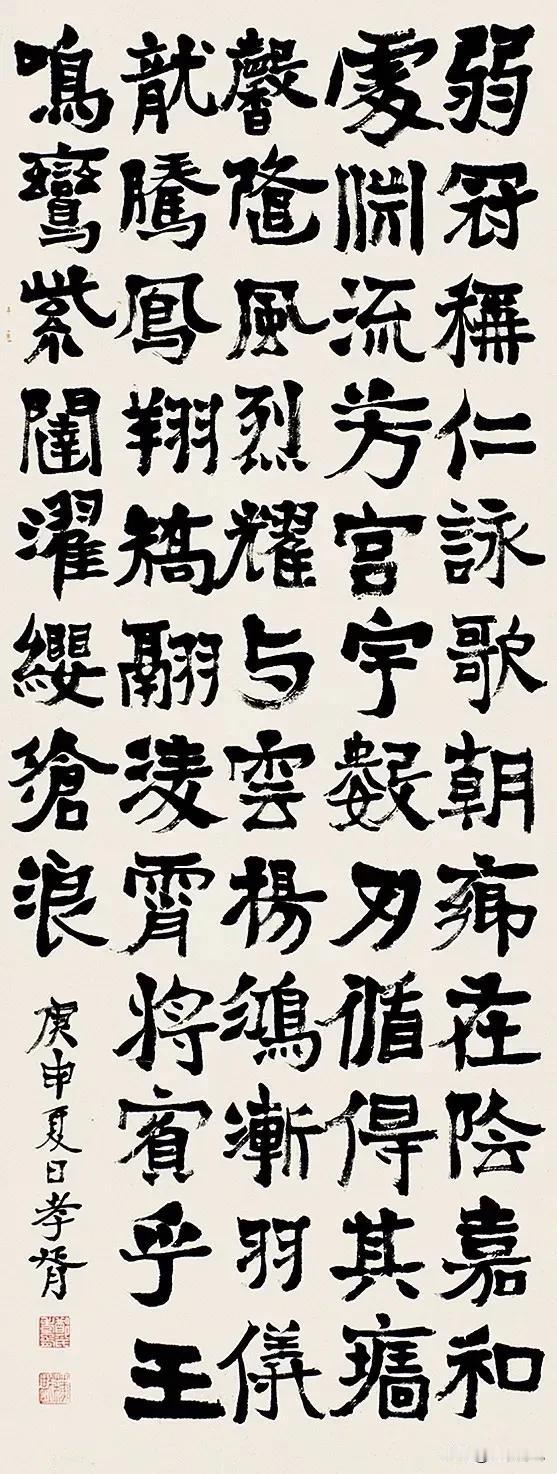 弱冠稱仁詠歌朝鄉在陰嘉和
處淵流芳宮宇數刃循得其墻
馨隆風烈耀与雲楊鴻漸羽儀
龍騰鳳翔矯翮淩霄將賓乎王
鳴鸞紫闥濯纓滄浪
庚申夏日孝胥